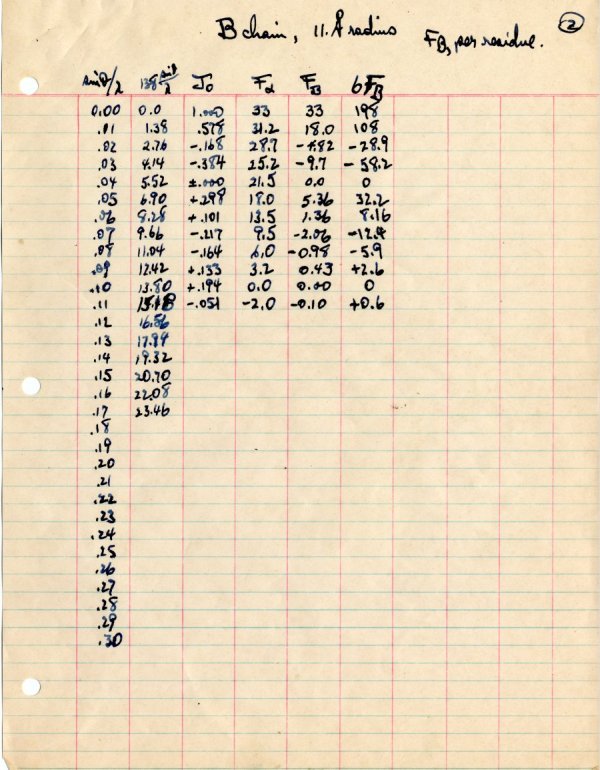 B chain, 11. Å radius F_B, per residue. 2
sinθ/λ 138 sinθ/λ J₀ F_α F_B 6F_B
0.00 0.0 1.000 33 33 198
.01 1.38 .578 31.2 18.0 108
.02 2.76 -.168 28.7 -4.82 -28.9
.03 4.14 -.384 25.2 -9.7 -58.2
.04 5.52 ±.000 21.5 0.0 0
.05 6.90 +.298 18.0 5.36 32.2
.06 8.28 +.101 13.5 1.36 8.16
.07 9.66 -.217 9.5 -2.06 -12.4
.08 11.04 -.164 6.0 -0.98 -5.9
.09 12.42 +.133 3.2 0.43 +2.6
.10 13.80 +.194 0.0 0.00 0
.11 15.18 -.051 -2.0 -0.10 +0.6
.12 16.56
.13 17.94
.14 19.32
.15 20.70
.16 22.08
.17 23.46
.18
.19
.20
.21
.22
.23
.24
.25
.26
.27
.28
.29
.30